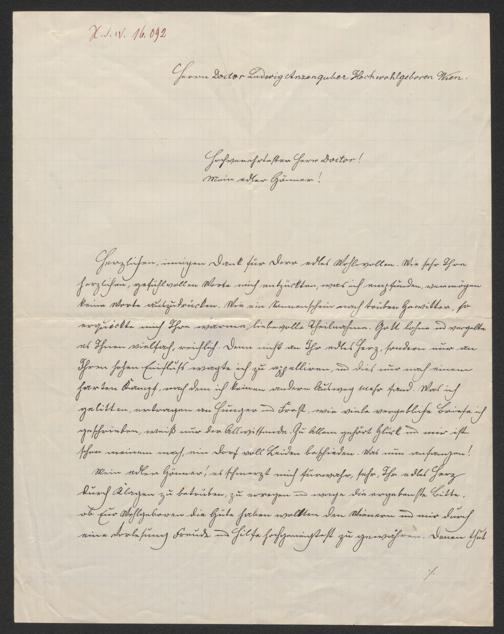 H.I.N. 16.092
Herrn Doctor Ludwig Anzengruber Hochwohlgeboren Wien.
Hochverehrtester Herr Doctor!
Mein edler Gönner!
Herzlichen, innigen Dank für Dero edles Wohlwollen. Wie sehr Ihre
herzlichen, gefühlvollen Worte mich entzückten, was ich empfunden, vermögen
keine Worte auszudrücken. Wie ein Sonnenschein nach trüben Gewitter, so
erquickte mich Ihre warme, liebevolle Theilnahme. Gott lohne und vergelte
es Ihnen vielfach, reichlich. Denn nicht an Ihr edles Herz, sondern nur an
Ihren hohen Einfluß wagte ich zu appelliren, und dies nur nach einem
harten Kampf, nach dem ich keinen andern Ausweg mehr fand. Was ich
gelitten, ertragen an Hunger und Frost, wie viele vergebliche Briefe ich
geschrieben, weiß nur der Allwissende. Zu Allem gehört Glück und mir ist
schon meinem nach, ein Dorf voll Leiden beschieden. Was nun anfangen!
Mein edler Gönner! es schmerzt mich fürwahr, sehr, Ihr edles Herz
durch Klagen zu betrüben, zu erregen und wage die ergebenste Bitte,
ob Euer Wohlgeboren die Güte haben wollten den Wienern und mir durch
eine Vorlesung Freude und Hilfe hochgeneigtest zu gewähren. Denen thut